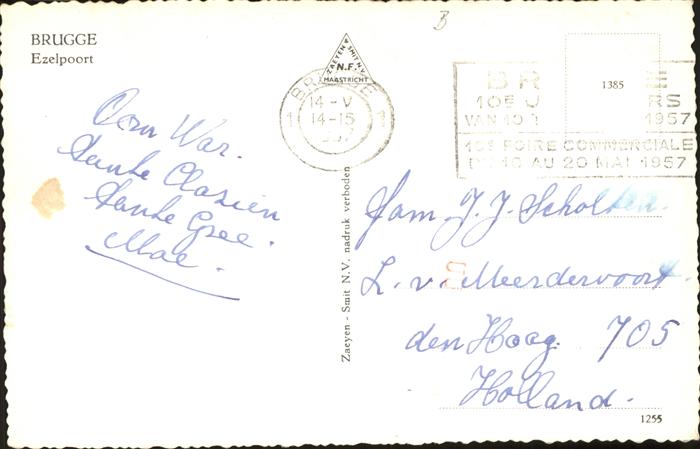 BRUGGE
Ezelpoort
ZAEYEN SMIT N.V.
N.F.
MAASTRICHT
BRUGGE
1 14-V 1
14-15
1957
BR E
10E J RS
VAN 10 1957
10E FOIRE COMMERCIALE
DU 10 AU 20 MAI 1957
1385
Oom War.
Tante Clasien
Tante Gree.
Mac.
Zaeyen - Smit N.V. nadruk verboden
Fam J. J. Scholten.
L. v. Meerdervoort.
den Haag. 705
Holland.
1255